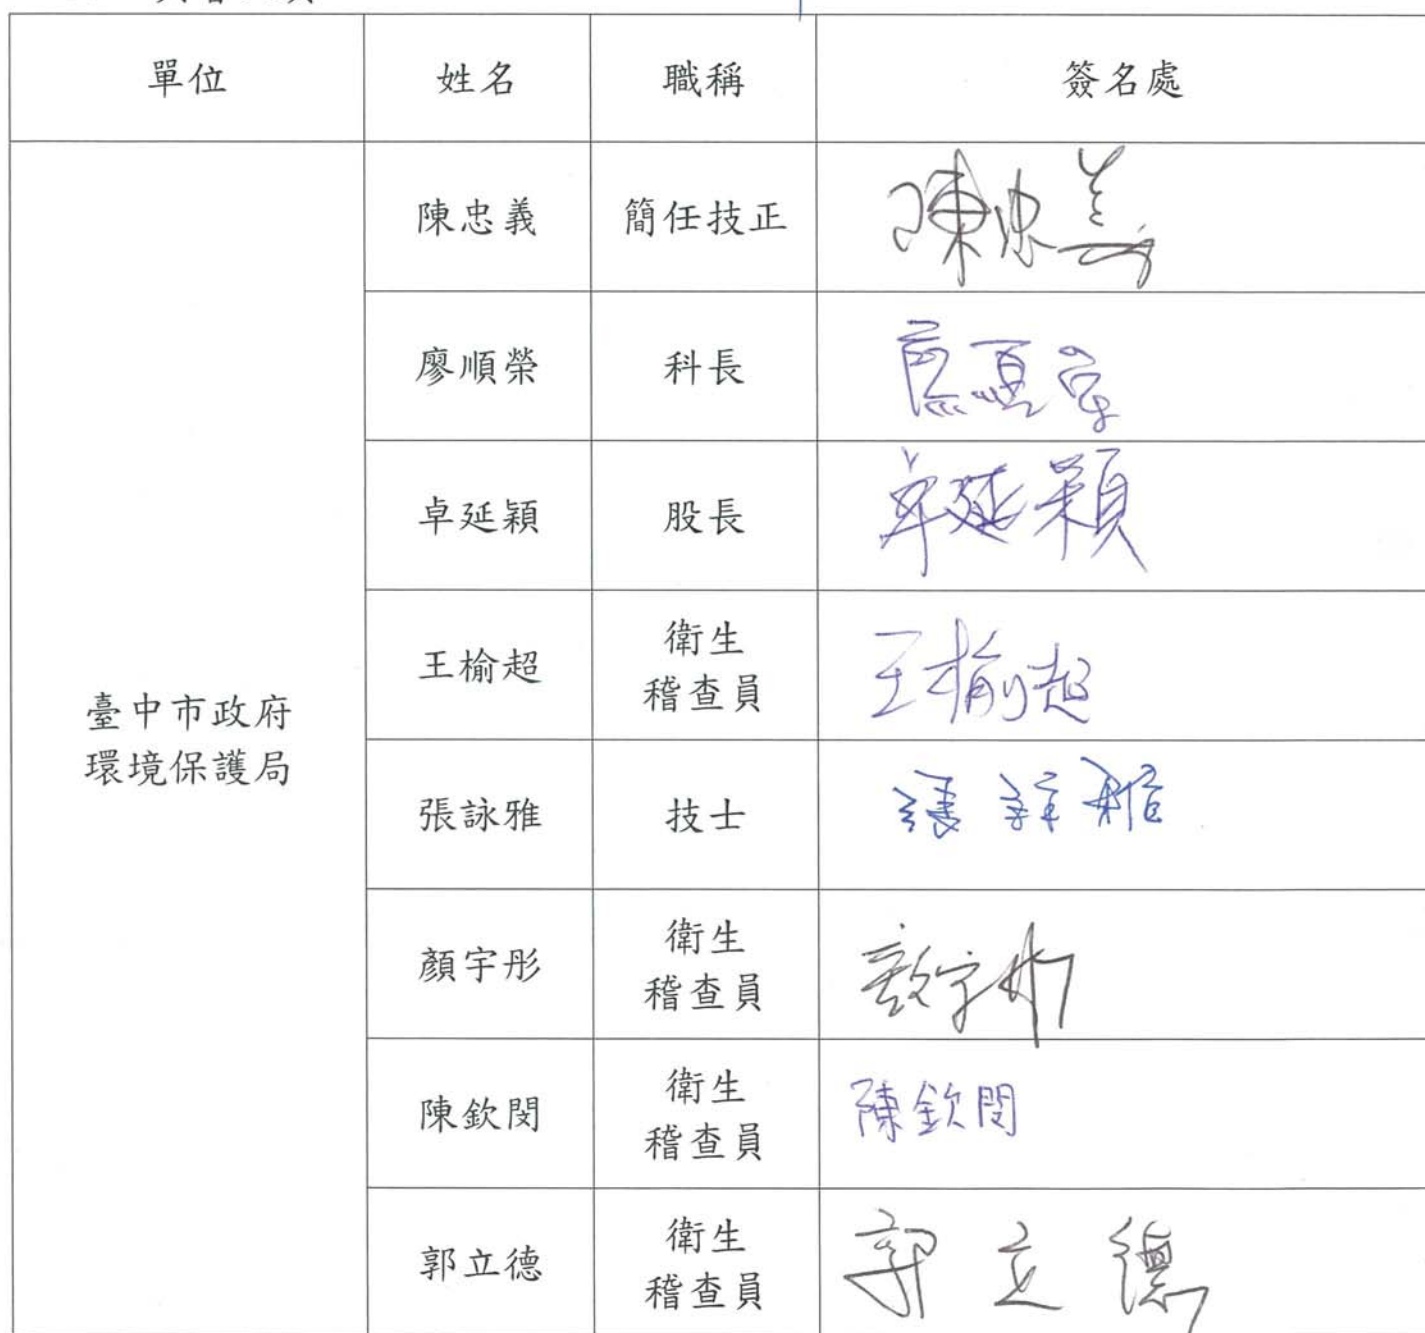 單位 姓名 職稱 簽名處
臺中市政府
環境保護局
陳忠義 簡任技正 陳忠義
廖順榮 科長 廖順榮
卓延穎 股長 卓延穎
王榆超 衛生
稽查員 王榆超
張詠雅 技士 張詠雅
顏宇彤 衛生
稽查員 顏宇彤
陳欽閔 衛生
稽查員 陳欽閔
郭立德 衛生
稽查員 郭立德